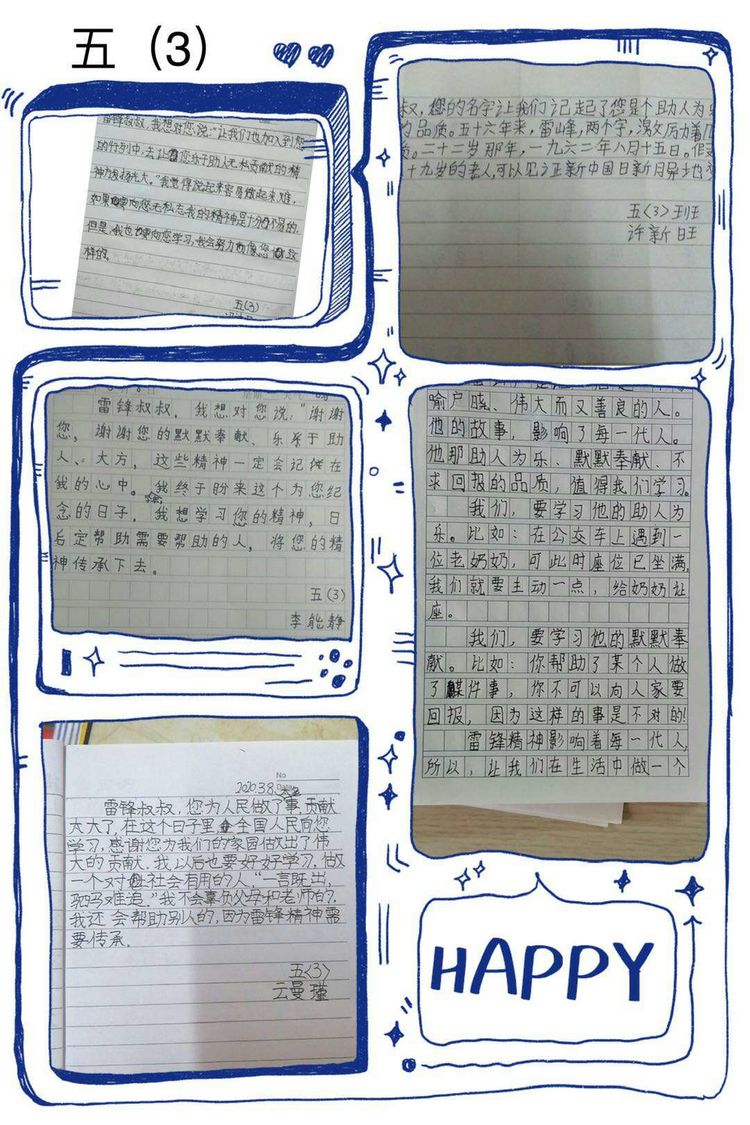 五（3）
雷锋叔叔，我想对您说："让我们也加入到您
的行列中，去让您乐于助人无私贡献的精
神发扬光大。"我觉得说起来容易做起来难，
如果要向您无私忘我的精神是十分不易的，
但是，我也要向您学习，我会努力像您一致
样的。
五(3)
叔，您的名字让我们记起了您是个助人为
品质。五十六年来，雷峰，两个字，
二十二岁那年，一九六二年八月十五日。
十九岁的老人，可以见
五〈3〉班
许新旺
雷锋叔叔，我想对您说："谢谢
您，谢谢您的默默奉献、乐乐于助
人、大方，这些精神一定会记在
我的心中。我终于盼来这个为您纪
念的日子，我想学习您的精神，日
后定帮助需要帮助的人，将您的精
神传承下去。
五(3)
李能静
喻户晓、伟大而又善良的人。
他的故事，影响了每一代人。
他那助人为乐、默默奉献、不
求回报的品质，值得我们学习。
我们，要学习他的助人为
乐。比如：在公交车上遇到一
位老奶奶，可此时座位已坐满，
我们就要主动一点，给奶奶让
座。
我们，要学习他的默默奉
献。比如：你帮助了某个人做
了某件事，你不可以向人家要
回报，因为这样的事是不对的！
雷锋精神影响着每一代人，
所以，让我们在生活中做一个
No
2020.3.8
雷锋叔叔，您为人民做了事，贡献
大大了，在这个日子里，全国人民向您
学习，感谢您为我们的家园做出了伟
大的贡献。我以后也要好好学习，做
一个对社会有用的人，"一言既出，
驷马难追。"我不会辜负父母和老师的，
我还会帮助别人的，因为雷锋精神需
要传承。
五〈3〉
云曼瑾
HAPPY